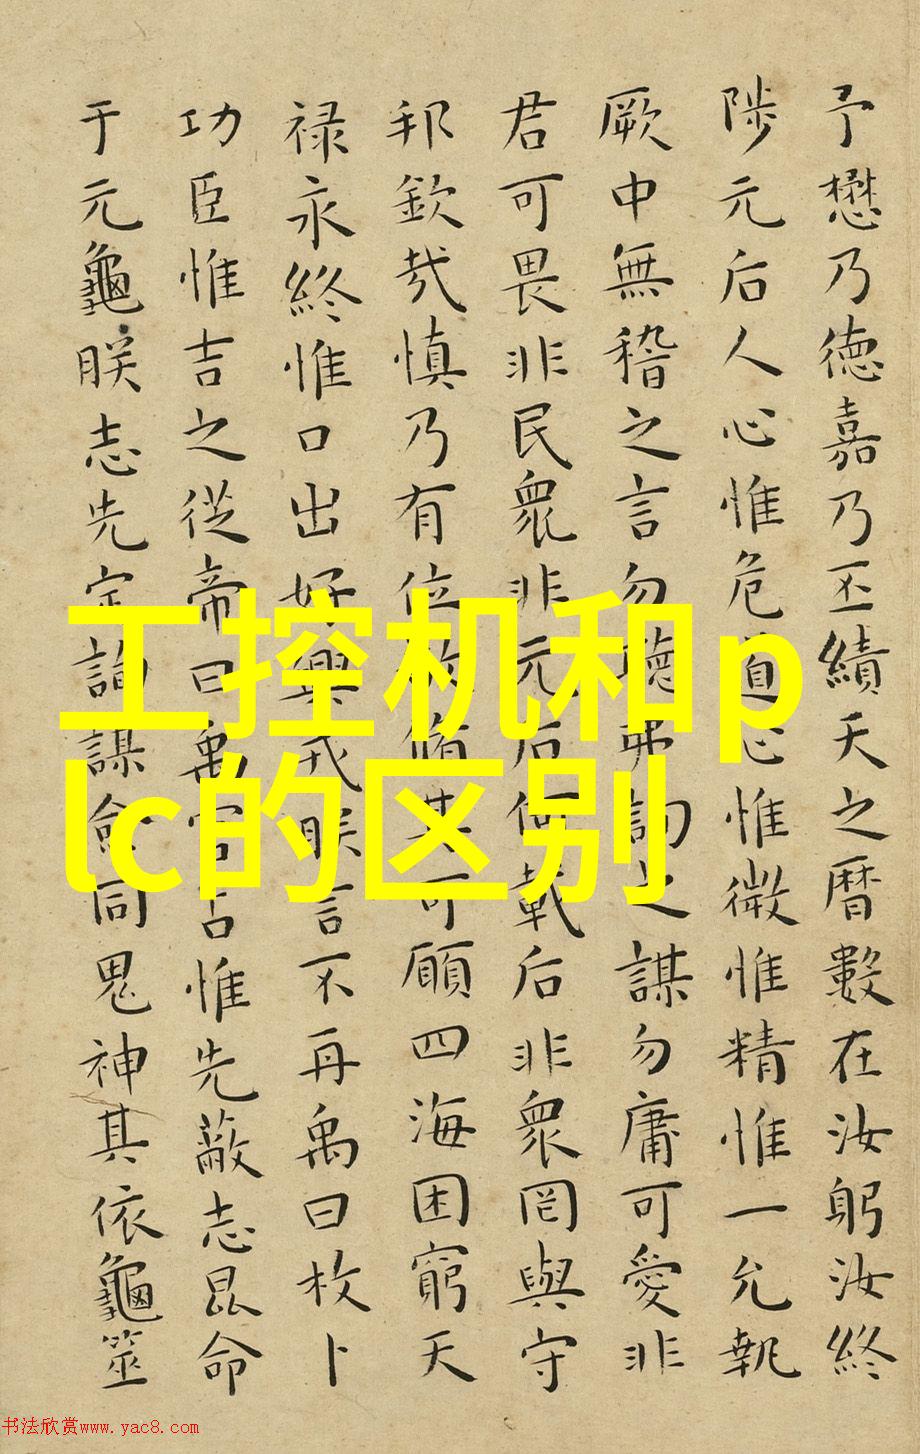 予懋乃德嘉乃丕績天之曆數在汝躬汝終
陟元后人心惟危道心惟微惟精惟一允執
厥中無稽之言勿聽弗詢之謀勿庸可愛非
君可畏非民衆非元后何戴后非衆罔與守
邦欽哉慎乃有位敬脩其可願四海困窮天
禄永終惟口出好興戎朕言不再禹曰枚卜
功臣惟吉之從帝曰禹官占惟先蔽志昆命
于元龜朕志先定詢謀僉同鬼神其依龜筮
工控机和p
lc的区别
书法欣赏www.yac8.com